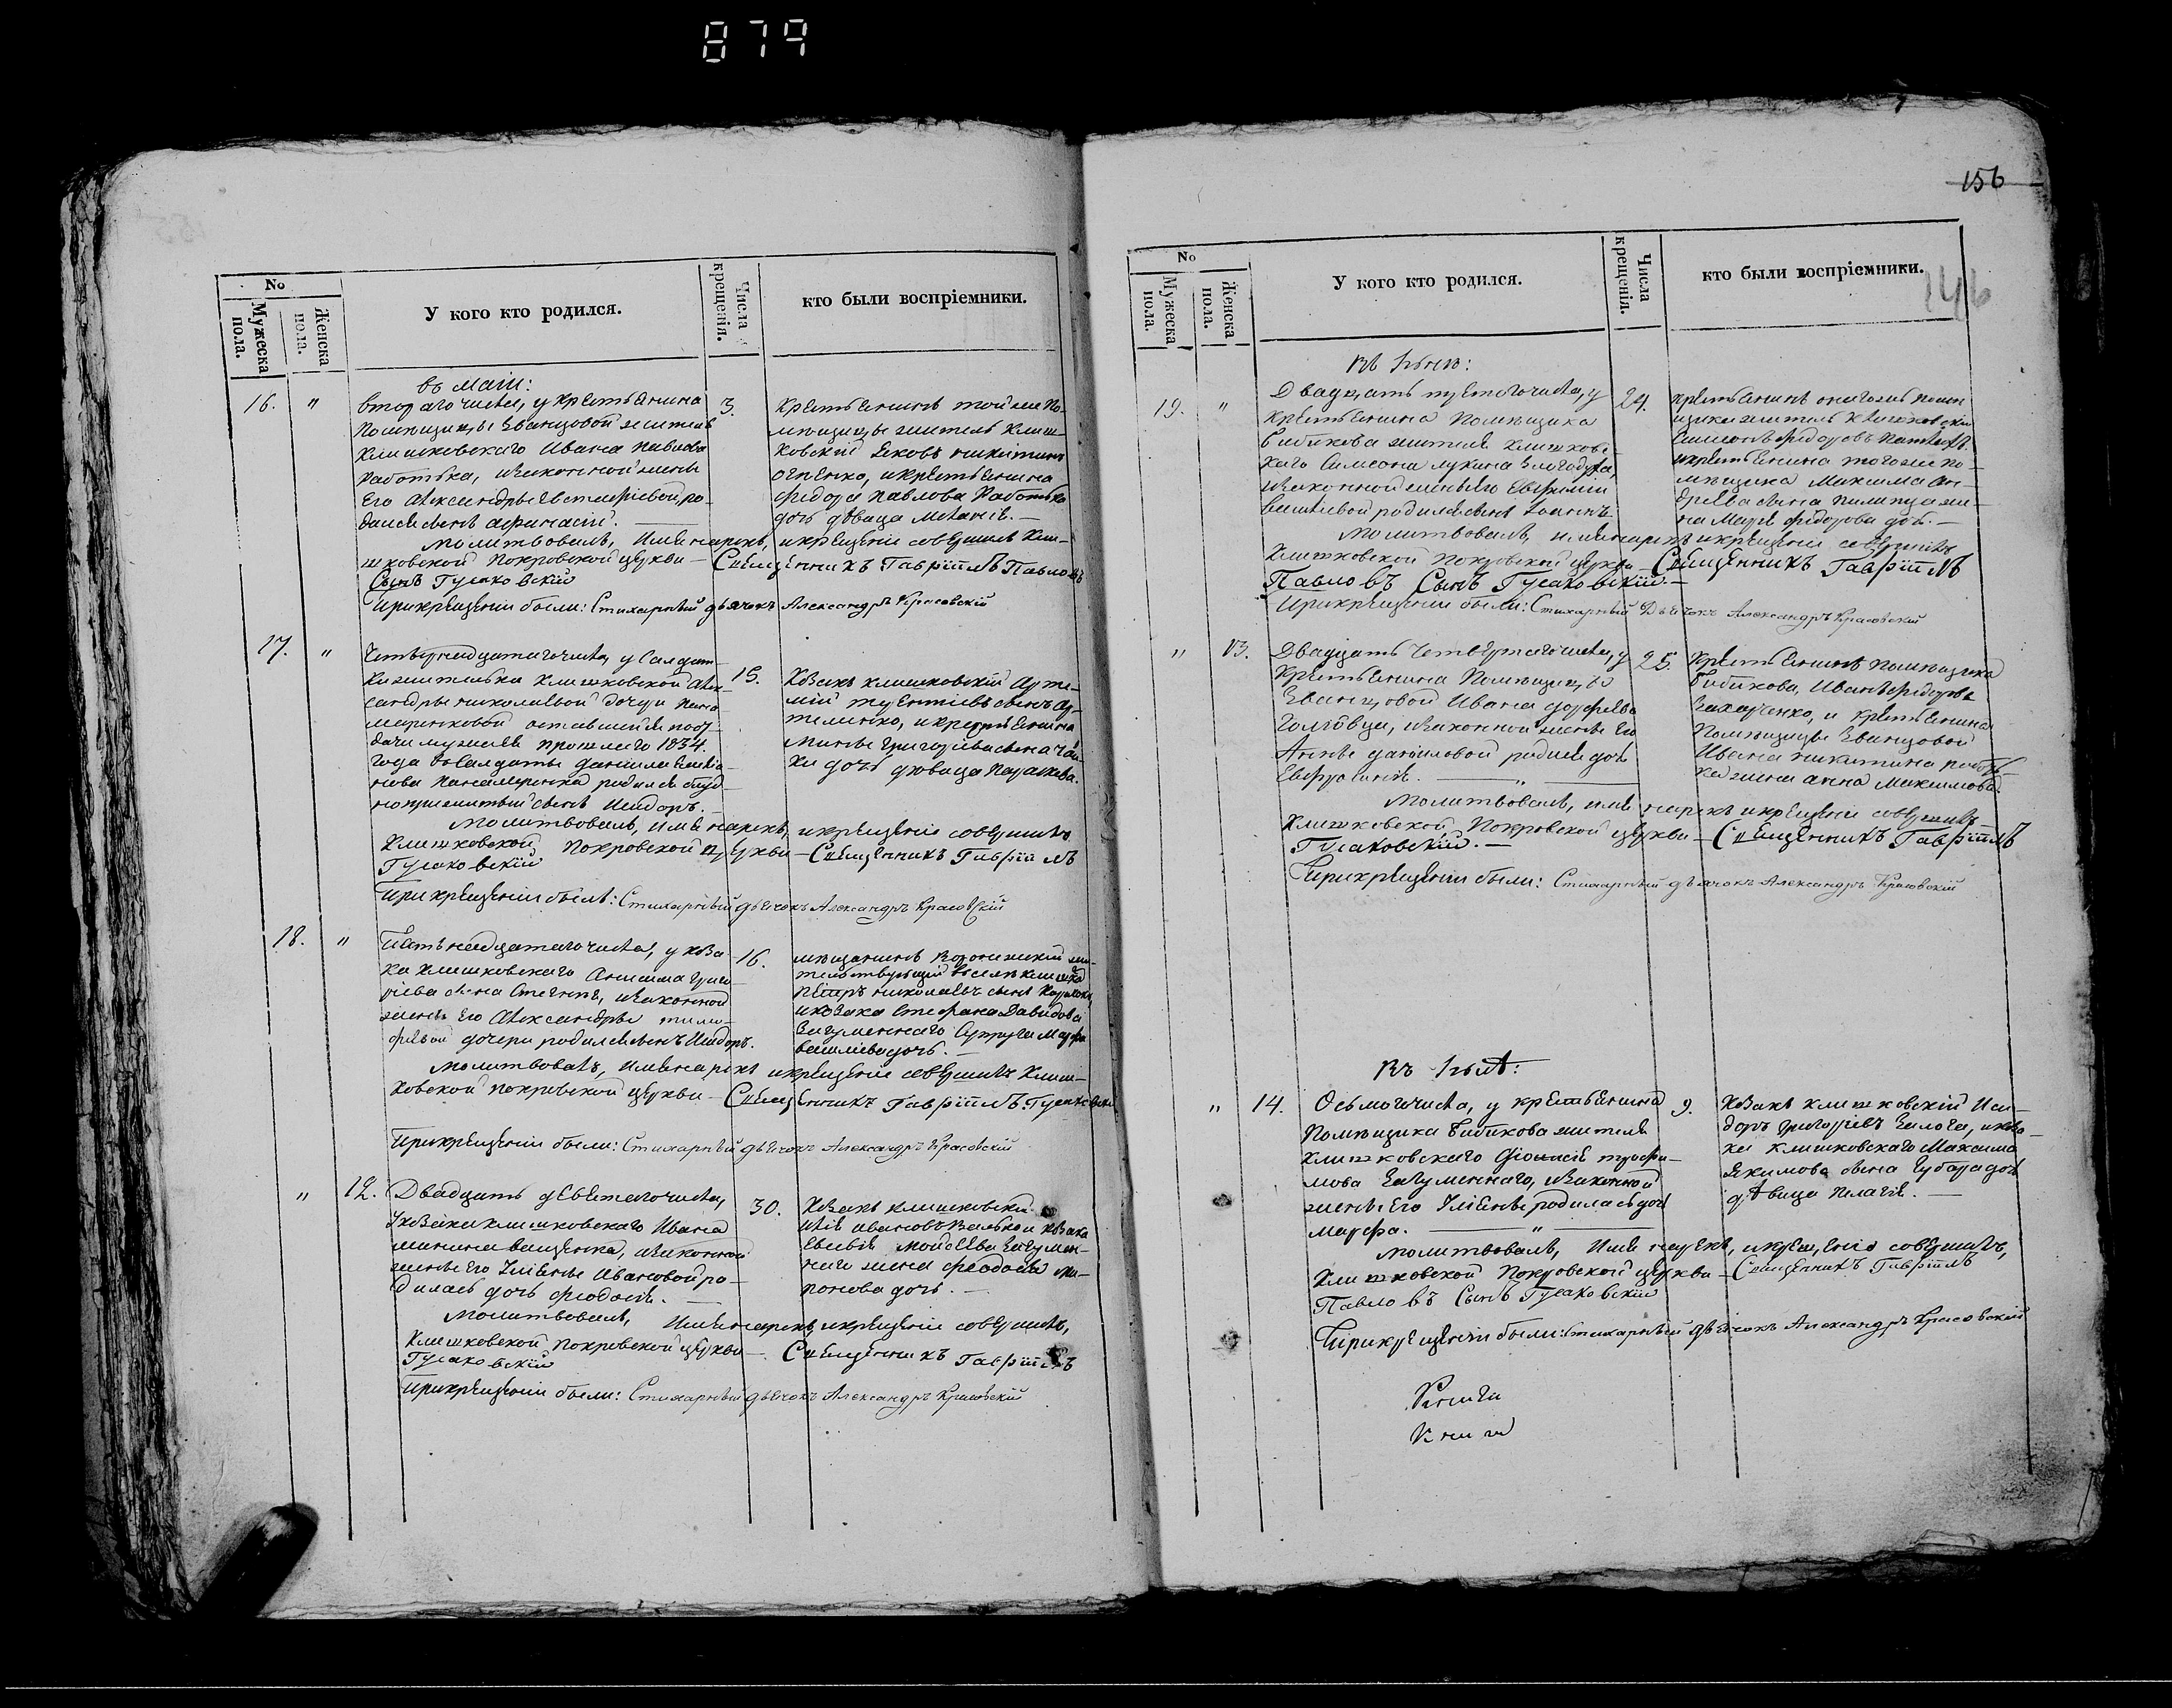 879
156
146
No
Мужеска пола.
Женска пола.
У кого кто родился.
Числа крещенія.
кто были воспріемники.
въ маіи:
16. "
втораго числа, у крестьянина
помѣщицы Званцовой жителя
клишковскаго Ивана Павлова
работька, изаконной жены
его Александры
дился сынъ Афанасій.
3.
крестьянинъ той же по-
мѣщицы житель клиш-
ковскій Яковъ Никитинъ
огіенко, икрестьянина
Федора Павлова Работька
дочь дѣвица Меланія.
молитвовалъ, имя нарекъ, икрещеніе совершилъ Кли-
шковской Покровской церкви – Священникъ Гавріилъ Павловъ
Сынъ Гусаковскій
При крещеніи были: Стихарный дьячокъ Александръ Красовскій
17. "
Четырнадцатаго числа, у Салдат-
ки жителька клишковской Алек-
сандры Николаевой дочери
оставшейся по от-
дачи мужа ея прошлаго 1834.
года въ Салдаты Даніила
родился
сынъ Исидоръ.
15.
Козакъ клишковскій Арте-
мій сынъ Ар-
теменко, и крестьянина
Григорьева сына
ки дочь дѣвица Параскева.
молитвовалъ, имя нарекъ, икрещеніе совершилъ
Клишковской Покровской церкви – Священникъ Гавріилъ
Гусаковскій
При крещеніи былъ: Стихарный дьячокъ Александръ Красовскій
18. "
Пятьнадцатаго числа, у коза-
ка клишковскаго Анисима Григо-
ріева сына изаконной
жены его Александры тимо-
фѣевой дочери родился сынъ Исидоръ.
16.
мѣщанинъ Воронежскій жи-
тельствующій въ селѣ клишк
Петръ Николаевъ сынъ
икозака Стефана Давидова
Загуменнаго Супруга Марфа
васильева дочь.
молитвовалъ, имя нарекъ икрещеніе совершилъ Клиш-
ковской Покровской церкви – Священникъ Гавріилъ Гусаковскій
При крещеніи были: Стихарный дьячокъ Александръ Красовскій
" 12.
Двадцать девятаго числа,
У козака клишковскаго Ивана
минина ващенка, изаконной
жены его Уліяны Ивановой ро-
дилась дочь Феодосія.
30.
Козакъ клишковскій
Илія Ивановъ козака
Евсевія Мойсеева Загумен-
наго жена Феодосія Ми-
ронова дочь.
молитвовалъ, имя нарекъ, икрещеніе совершилъ,
Клишковской Покровской церкви – Священникъ Гавріилъ
Гусаковскій
При крещеніи были: Стихарный дьячокъ Александръ Красовскій
No
Мужеска пола.
Женска пола.
У кого кто родился.
Числа крещенія.
кто были воспріемники.
Въ Іюнѣ:
19. "
Двадцать третого числа, у
крестьянина Помѣщика
Бибикова жителя клишковс-
каго Симеона Лукина
изаконной жены его Евфиміи
васильевой родился сынъ Іоаннъ.
24.
крестьянинъ онагожъ помѣ
щика житель клишковскій
Симеонъ Федоровъ
икрестьянина тогоже по-
мѣщика Максима Ан-
дреева сына Пилипца же-
на Марія Федорова дочь.
молитвовалъ, имя нарекъ икрещеніе совершилъ
Клишковской Покровской церкви – Священникъ Гавріилъ
Павловъ Сынъ Гусаковскій.
При крещеніи были: Стихарный Дьячокъ Александръ Красовскій
" 13.
Двадцать четвертаго числа, у
Крестьянина Помѣщицы
Званцовой Ивана Дорофеева
Голговца, изаконной жены Его
Анны Даниловой родилась дочь
Евфросинія. "
25.
Крестьянинъ помѣщика
Бибикова, Иванъ Федоровъ
Захарченко, и крестьянина
Помѣщицы Званцовой
Ивана Никитина работь-
ка жена Анна Максимова.
молитвовалъ, имя нарекъ икрещеніе совершилъ
Клишковской Покровской церкви – Священникъ Гавріилъ
Гусаковскій.
При крещеніи были: Стихарный дьячокъ Александръ Красовскій
Въ Іюлѣ:
" 14.
Осьмого числа, у крестьянина
Помѣщика Бибикова жителя
Клишковскаго Діонисія трофи-
мова Загуменнаго, изаконной
жены Его Уліяны родилась дочь
Марфа. "
9.
Козакъ клишковскій Иси-
доръ Григоріевъ икоза-
ка клишковскаго Максима
Якимова сына Губара дочь
дѣвица Пелагія.
молитвовалъ, Имя нарекъ, икрещеніе совершилъ,
Клишковской Покровской церкви – Священникъ Гавріилъ
Павловъ Сынъ Гусаковскій
При крещеніи были: Стихарный дьячокъ Александръ Красовскій
Книги